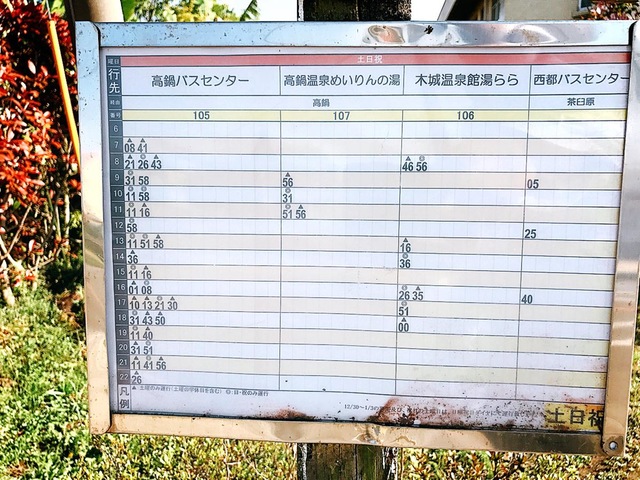 曜日 土日祝
行先 高鍋バスセンター 高鍋温泉めいりんの湯 木城温泉館湯らら 西都バスセンター
経由 高鍋 茶臼原
番号 105 107 106
6
7 08 41
8 21 26 43 46 56
9 31 58 56 05
10 11 58 31
11 11 16 51 56
12 58 25
13 11 51 58 16
14 36 36
15 11 16
16 01 08 26 35 40
17 10 13 21 30 51
18 31 43 50 00
19 11 40
20 31 51
21 11 41 56
22 26
凡例 ▲ 土曜のみ運行(土曜の学休日を含む) ◎ 日・祝のみ運行
12/30~1/3の
土日祝